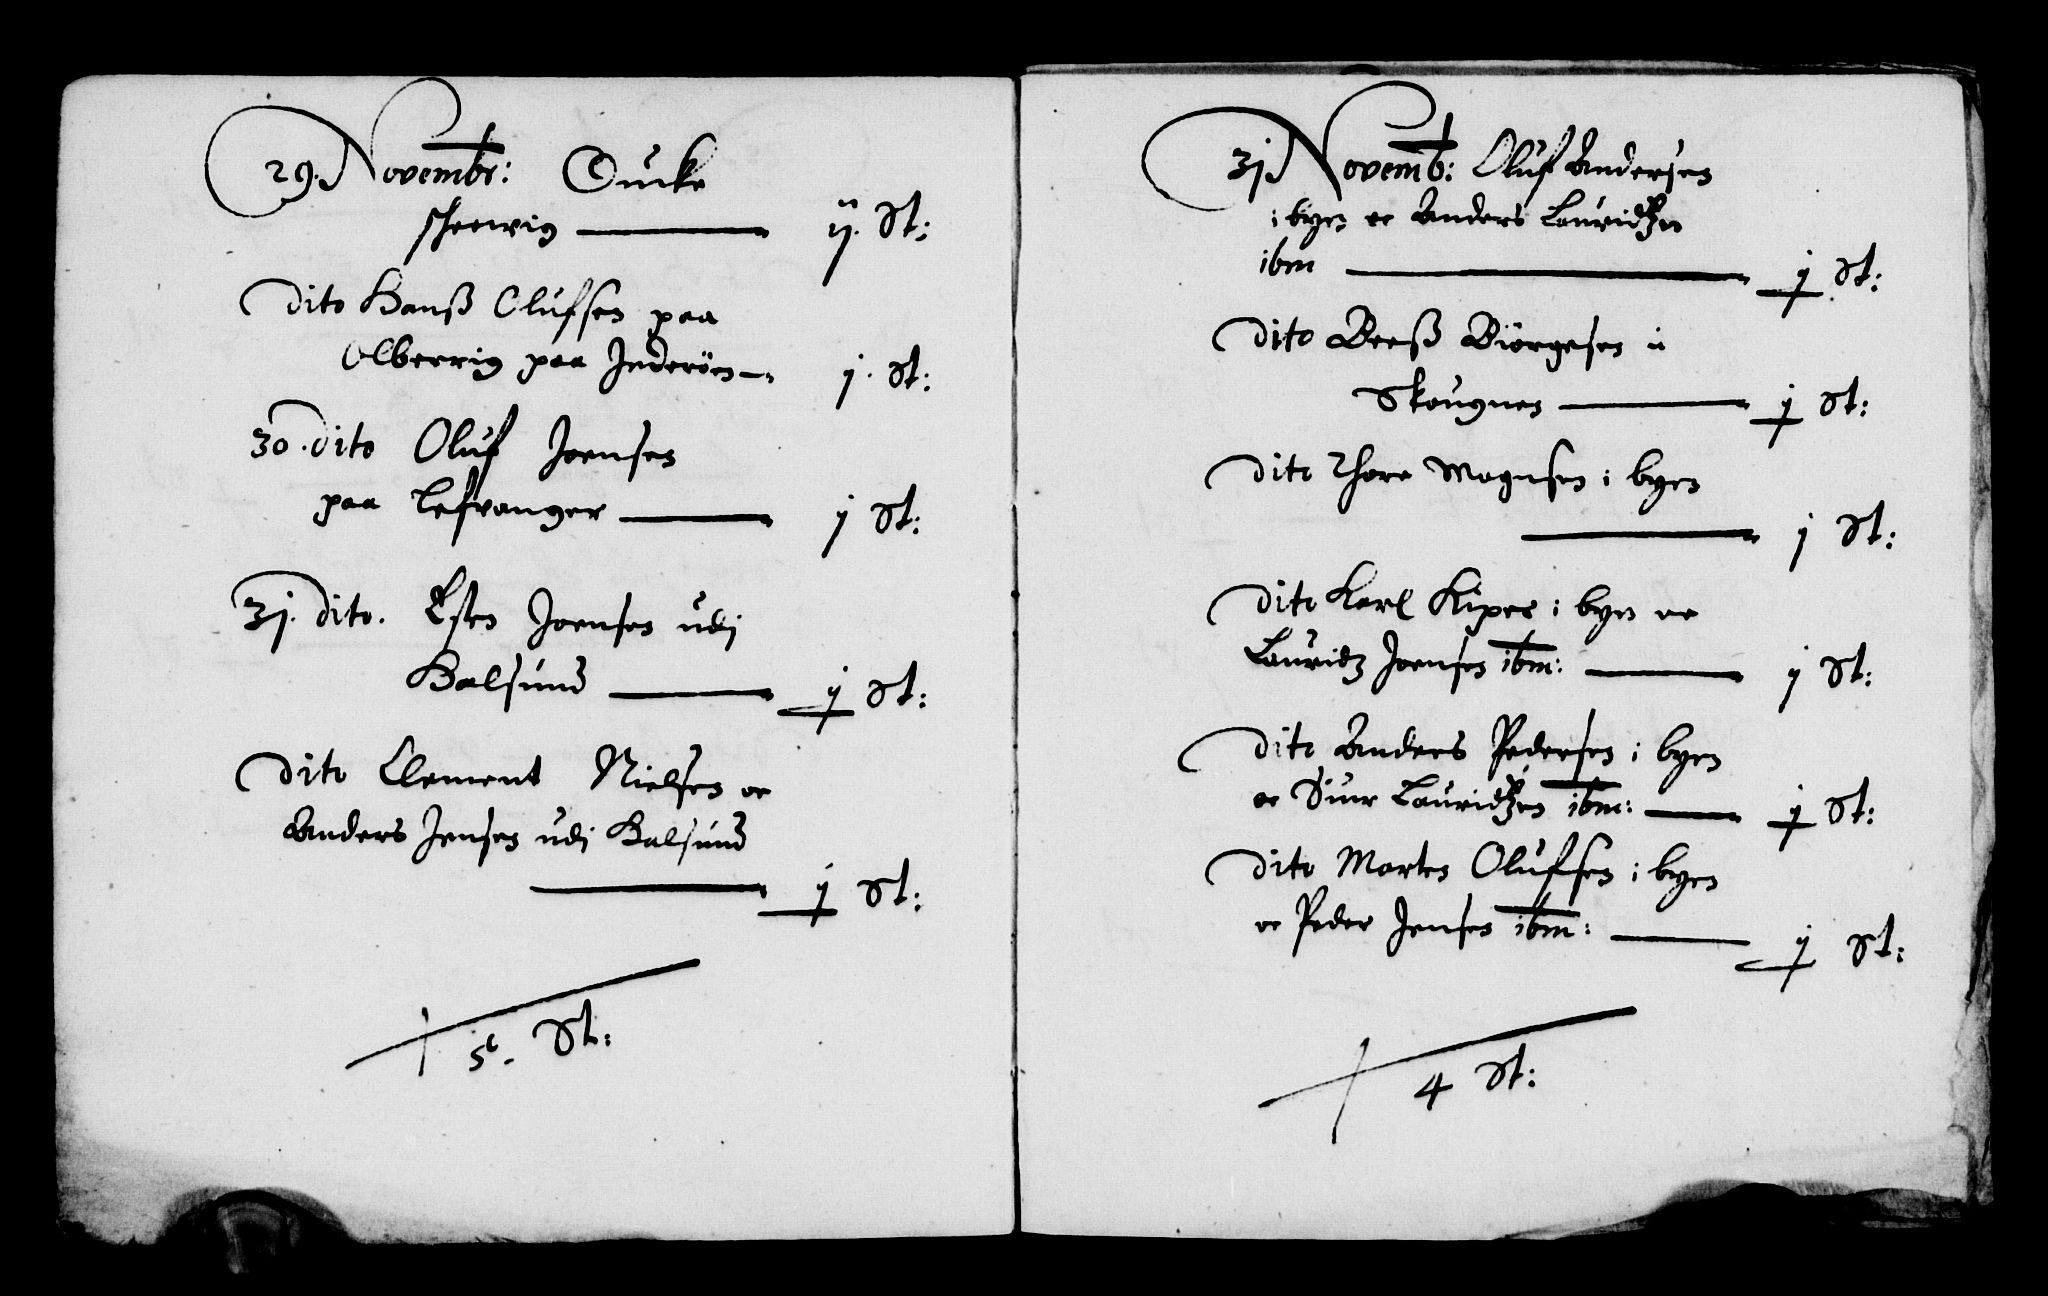 29. Novembr: Oucke
sherwig ij. St:
Dito Hanß Olufsen paa
Olberrig paa Inderöen j. St:
30. dito Oluf Joensen
paa Lefvanger j St:
3j. dito. Esten Joensen udi
Halsund j St:
Dito Clement Nielsen oc
Anders Jensen udi Halsund
j St:
5. St:
3j Novemb: Oluf Andersen
i byen oc Anders Lauridtzen
ibm j St:
Dito Beeß Biörgesen i
Skougnes j St:
Dito Thore Mognsen i byen
j St:
Dito Karl Kipes i byen oc
Lauridz Joensen ibm: j St:
Dito Anders Pedersen i byen
oc Siur Lauridtzen ibm: j St:
Dito Morten Olufsen i byen
oc Peder Jensen ibm: j St:
4 St: